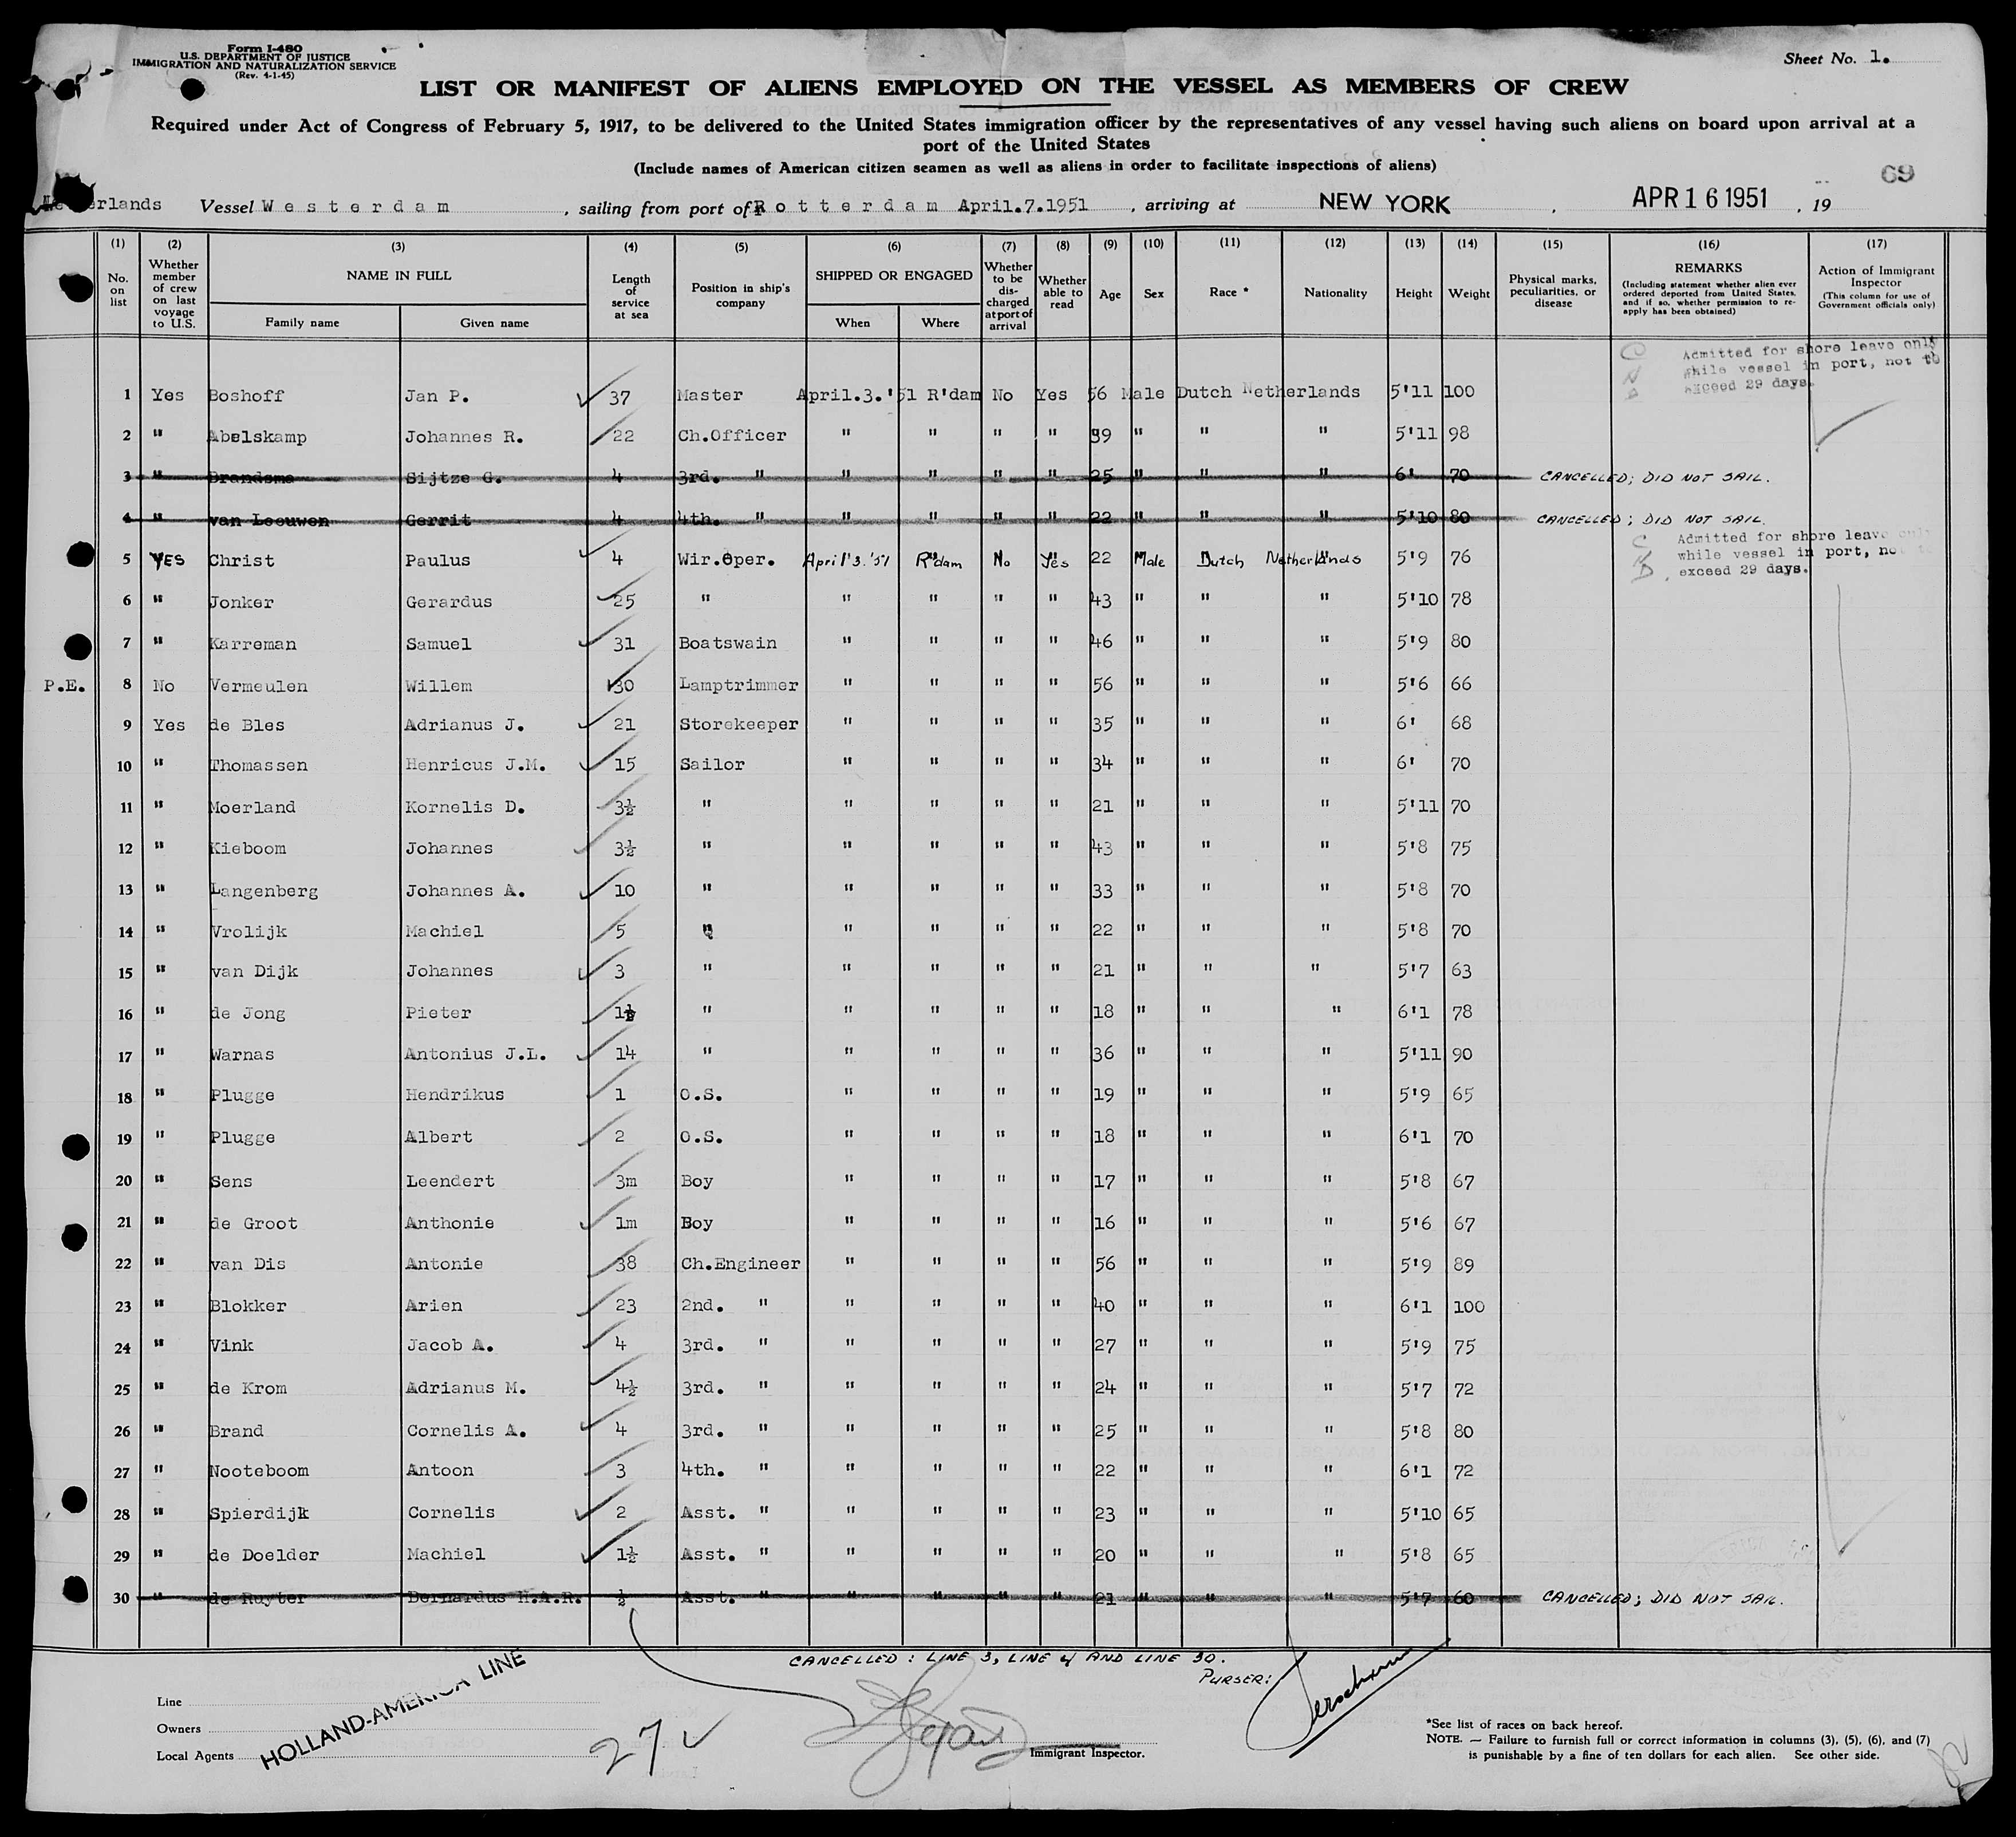 Form I-480
U.S. DEPARTMENT OF JUSTICE
IMMIGRATION AND NATURALIZATION SERVICE
(Rev. 4-1-45)
Sheet No. 1.
LIST OR MANIFEST OF ALIENS EMPLOYED ON THE VESSEL AS MEMBERS OF CREW
Required under Act of Congress of February 5, 1917, to be delivered to the United States immigration officer by the representatives of any vessel having such aliens on board upon arrival at a
port of the United States
(Include names of American citizen seamen as well as aliens in order to facilitate inspections of aliens)
69
erlands Vessel Westerdam, sailing from port of Rotterdam April.7.1951, arriving at NEW YORK, APR 16 1951, 19
(1) (2) (3) (4) (5) (6) (7) (8) (9) (10) (11) (12) (13) (14) (15) (16) (17)
No. on list
Whether member of crew on last voyage to U.S.
NAME IN FULL
Family name Given name
Length of service at sea
Position in ship's company
SHIPPED OR ENGAGED
When Where
Whether to be discharged at port of arrival
Whether able to read
Age
Sex
Race *
Nationality
Height
Weight
Physical marks, peculiarities, or disease
REMARKS
(Including statement whether alien ever ordered deported from United States, and if so, whether permission to re-apply has been obtained)
Action of Immigrant Inspector
(This column for use of Government officials only)
Admitted for shore leave only
while vessel in port, not to
exceed 29 days.
1 Yes Boshoff Jan P. 37 Master April.3.'51 R'dam No Yes 56 Male Dutch Netherlands 5'11 100
2 " Abelskamp Johannes R. 22 Ch.Officer " " " " 39 " " " 5'11 98
3 " Brandsma Sijtze G. 4 3rd. " " " " " 25 " " " 6' 70 CANCELLED; DID NOT SAIL.
4 " van Leeuwen Gerrit 4 4th. " " " " " 22 " " " 5'10 80 CANCELLED; DID NOT SAIL.
Admitted for shore leave only
while vessel in port, not to
exceed 29 days.
5 YES Christ Paulus 4 Wir.Oper. April 3 '51 R'dam No Yes 22 Male Dutch Netherlands 5'9 76
6 " Jonker Gerardus 25 " " " " " 43 " " " 5'10 78
7 " Karreman Samuel 31 Boatswain " " " " 46 " " " 5'9 80
P.E. 8 No Vermeulen Willem 30 Lamptrimmer " " " " 56 " " " 5'6 66
9 Yes de Bles Adrianus J. 21 Storekeeper " " " " 35 " " " 6' 68
10 " Thomassen Henricus J.M. 15 Sailor " " " " 34 " " " 6' 70
11 " Moerland Kornelis D. 3½ " " " " " 21 " " " 5'11 70
12 " Kieboom Johannes 3½ " " " " " 43 " " " 5'8 75
13 " Langenberg Johannes A. 10 " " " " " 33 " " " 5'8 70
14 " Vrolijk Machiel 5 " " " " " 22 " " " 5'8 70
15 " van Dijk Johannes 3 " " " " " 21 " " " 5'7 63
16 " de Jong Pieter 1½ " " " " " 18 " " " 6'1 78
17 " Warnas Antonius J.L. 14 " " " " " 36 " " " 5'11 90
18 " Plugge Hendrikus 1 O.S. " " " " 19 " " " 5'9 65
19 " Plugge Albert 2 O.S. " " " " 18 " " " 6'1 70
20 " Sens Leendert 3m Boy " " " " 17 " " " 5'8 67
21 " de Groot Anthonie 1m Boy " " " " 16 " " " 5'6 67
22 " van Dis Antonie 38 Ch.Engineer " " " " 56 " " " 5'9 89
23 " Blokker Arien 23 2nd. " " " " " 40 " " " 6'1 100
24 " Vink Jacob A. 4 3rd. " " " " " 27 " " " 5'9 75
25 " de Krom Adrianus M. 4½ 3rd. " " " " " 24 " " " 5'7 72
26 " Brand Cornelis A. 4 3rd. " " " " " 25 " " " 5'8 80
27 " Nooteboom Antoon 3 4th. " " " " " 22 " " " 6'1 72
28 " Spierdijk Cornelis 2 Asst. " " " " " 23 " " " 5'10 65
29 " de Doelder Machiel 1½ Asst. " " " " " 20 " " " 5'8 65
30 " de Ruyter Bernardus H.A.R. ½ Asst. " " " " " 21 " " " 5'7 60 CANCELLED; DID NOT SAIL.
CANCELLED: LINE 3, LINE 4 AND LINE 30.
PURSER:
Line
Owners
Local Agents
HOLLAND-AMERICA LINE
27
Immigrant Inspector.
*See list of races on back hereof.
NOTE. — Failure to furnish full or correct information in columns (3), (5), (6), and (7)
is punishable by a fine of ten dollars for each alien. See other side.